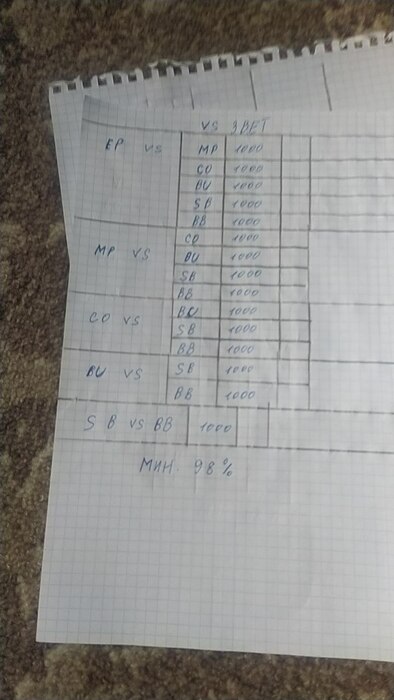 VS 3BET
EP VS MP 1000
CO 1000
BU 1000
SB 1000
BB 1000
MP VS CO 1000
BU 1000
SB 1000
BB 1000
CO VS BU 1000
SB 1000
BB 1000
BU VS SB 1000
BB 1000
SB VS BB 1000
МИН. 98%